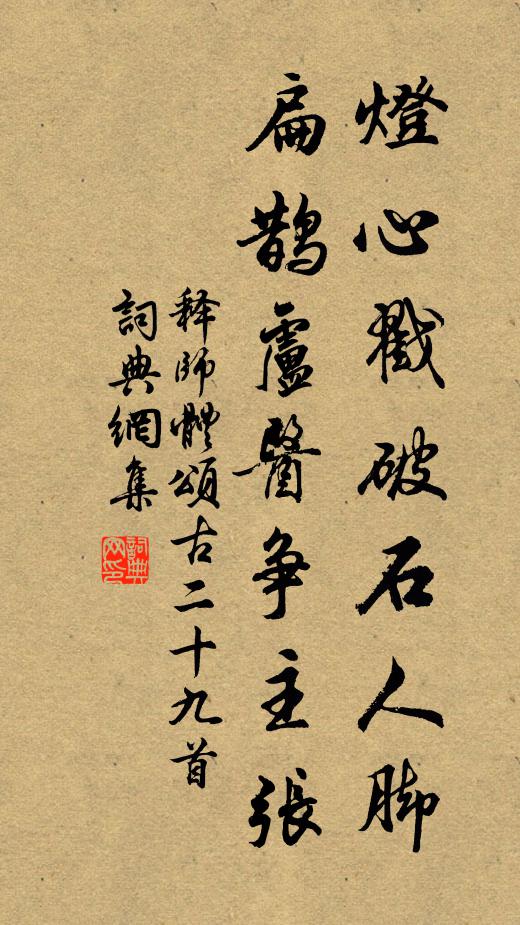 燈心戳破石人脚
扁鹊盧醫爭主張
释師體頌古二十九首
詞典網集
詞典网印